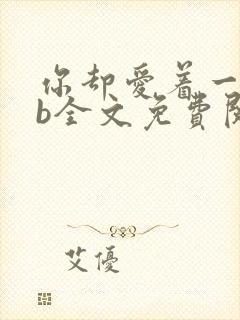 你却爱着一
b全文免費閱
艾優